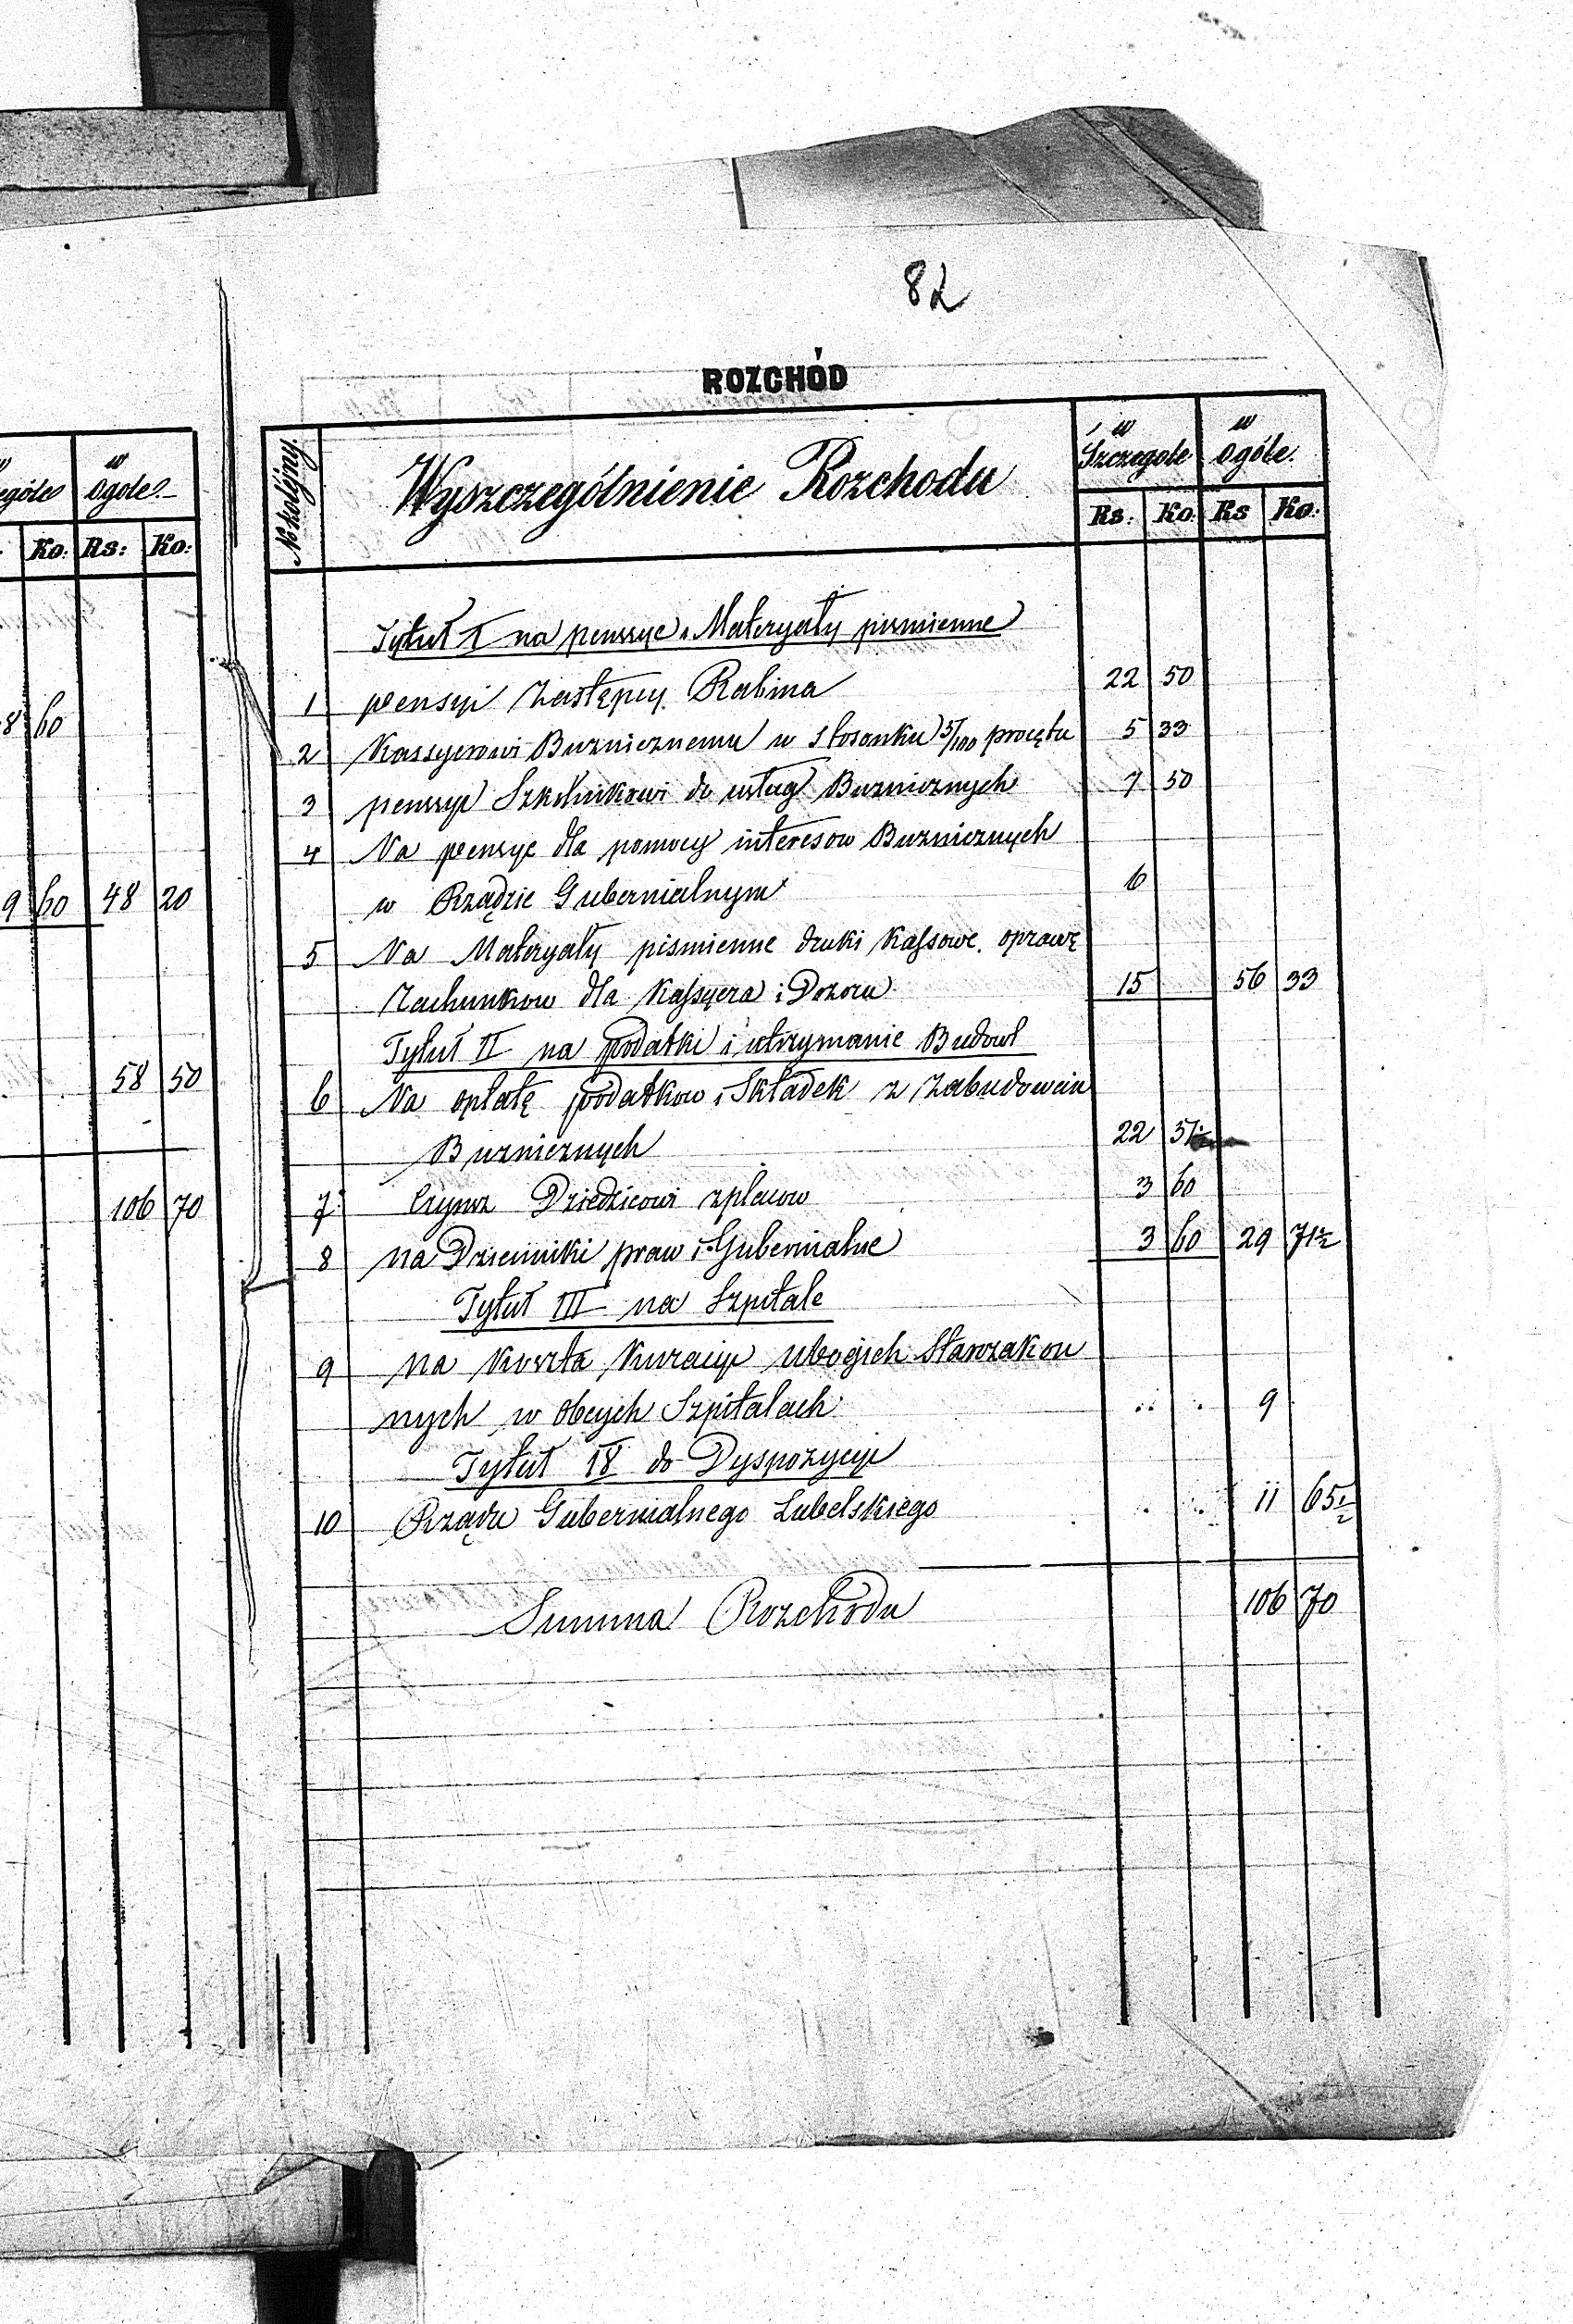 82
ROZCHÓD
w
ególe
w
Ogole.
Ko: Rs: Ko:
8 60
9 60 48 20
58 50
106 70
No kolejny.
Wyszczególnienie Rozchodu
w Szczegole
w Ogóle.
Rs: Ko Rs Ko:
Tytuł I na penssye i Materyały pismienne
1 pensyi Zastępcy Rabina 22 50
2 Kassyerowi Buznicznemu w stosonku 5/100 procętu 5 33
3 penssye Szkolnikowi do usług Buznicznych 7 50
4 Na pensye dla pomocy interesow Buznicznych
w Rządzie Gubernialnym 6
5 Na Materyały pismienne druki Kassowe oprawę
Rachunkow dla Kassyera i Dozoru 15 56 33
Tytuł II na podatki i utrzymanie Budowl
6 Na opłatę podatkow i Składek z Zabudowan
Buznicznych 22 51½
7 Czynsz Dziedzicowi z placow 3 60
8 na Dzienniki praw i Gubernialne 3 60 29 71½
Tytuł III na Szpitale
9 na Koszta Kuracyi ubogich Starozakon
nych w obcych Szpitalach 9
Tytuł IV do Dyspozycyi
10 Rządu Gubernialnego Lubelskiego 11 65½
Summa Rozchodu 106 70